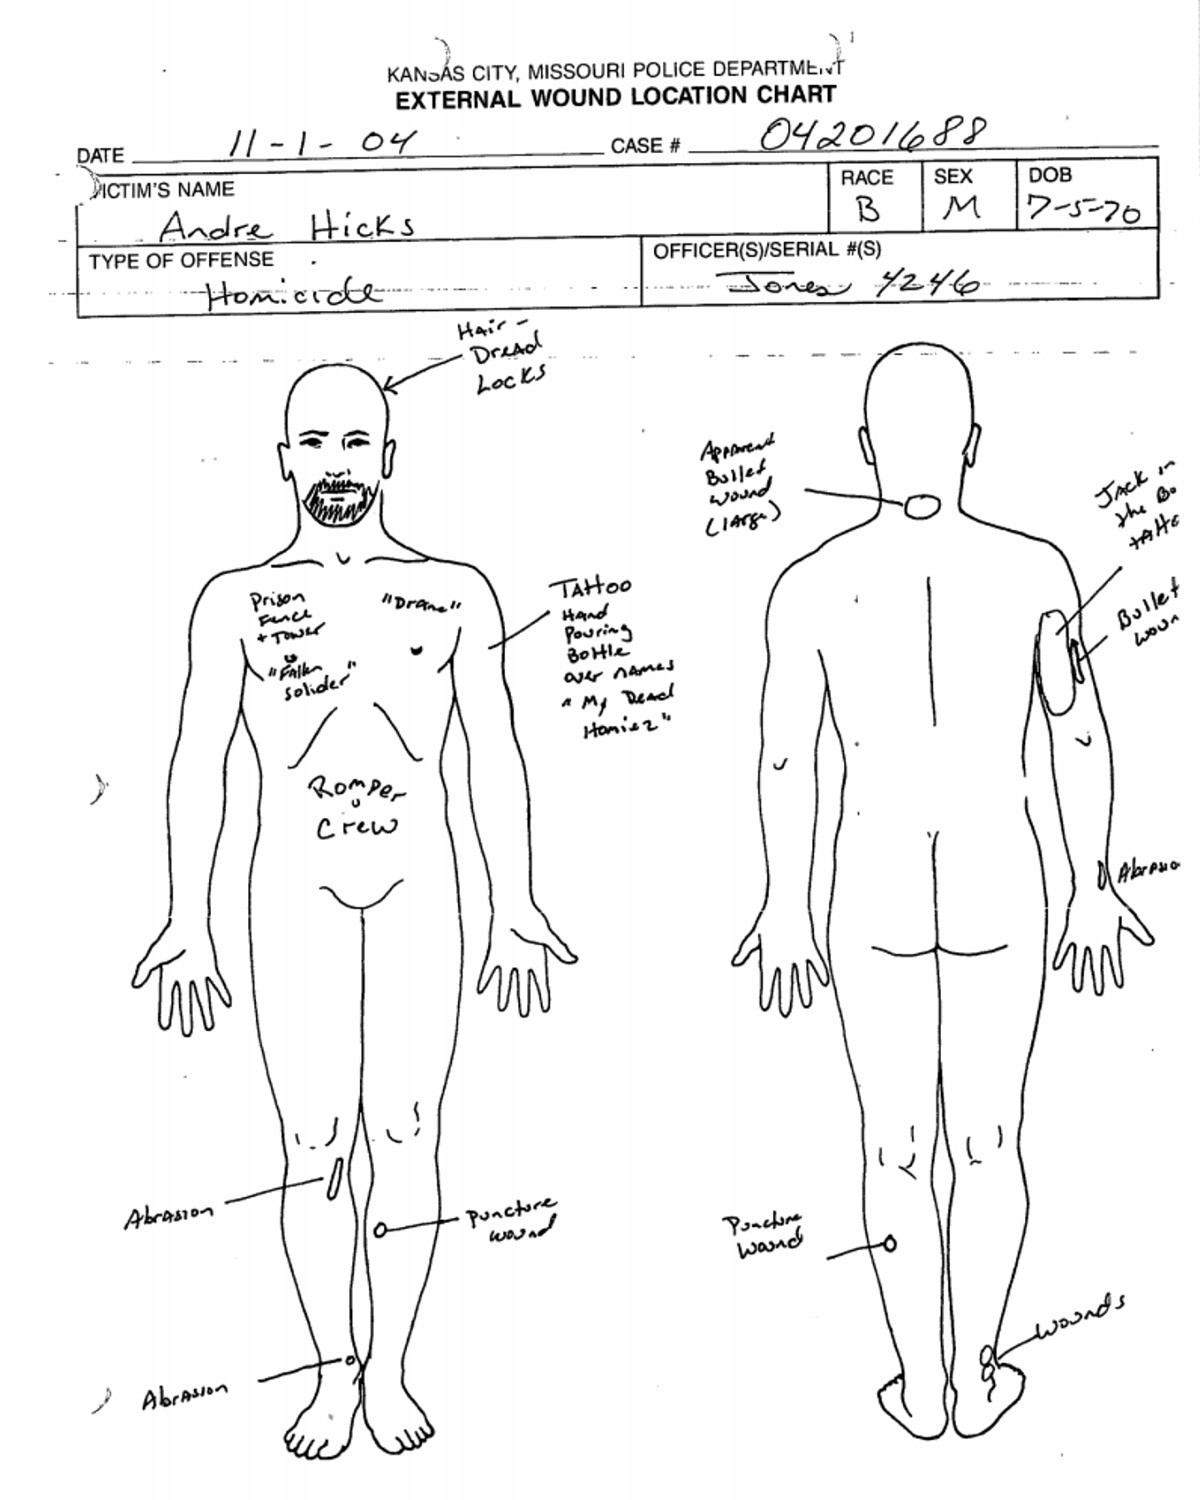 KANSAS CITY, MISSOURI POLICE DEPARTMENT
EXTERNAL WOUND LOCATION CHART
DATE 11-1-04 CASE # 04201688
VICTIM'S NAME RACE SEX DOB
Andre Hicks B M 7-5-70
TYPE OF OFFENSE OFFICER(S)/SERIAL #(S)
Homicide Jones 4246
Hair -
Dread
Locks
Apparent
Bullet
wound
(large)
Jack in
the Bo
Bullet
woun
Prison
Fence
+ Tower
"Fallen
solider"
"Drane"
TATToo
Hand
Pouring
Bottle
over names
"My Dead
Homiez"
Romper
Crew
Abrasio
Abrasion
Puncture
wound
Abrasion
Puncture
wound
wounds